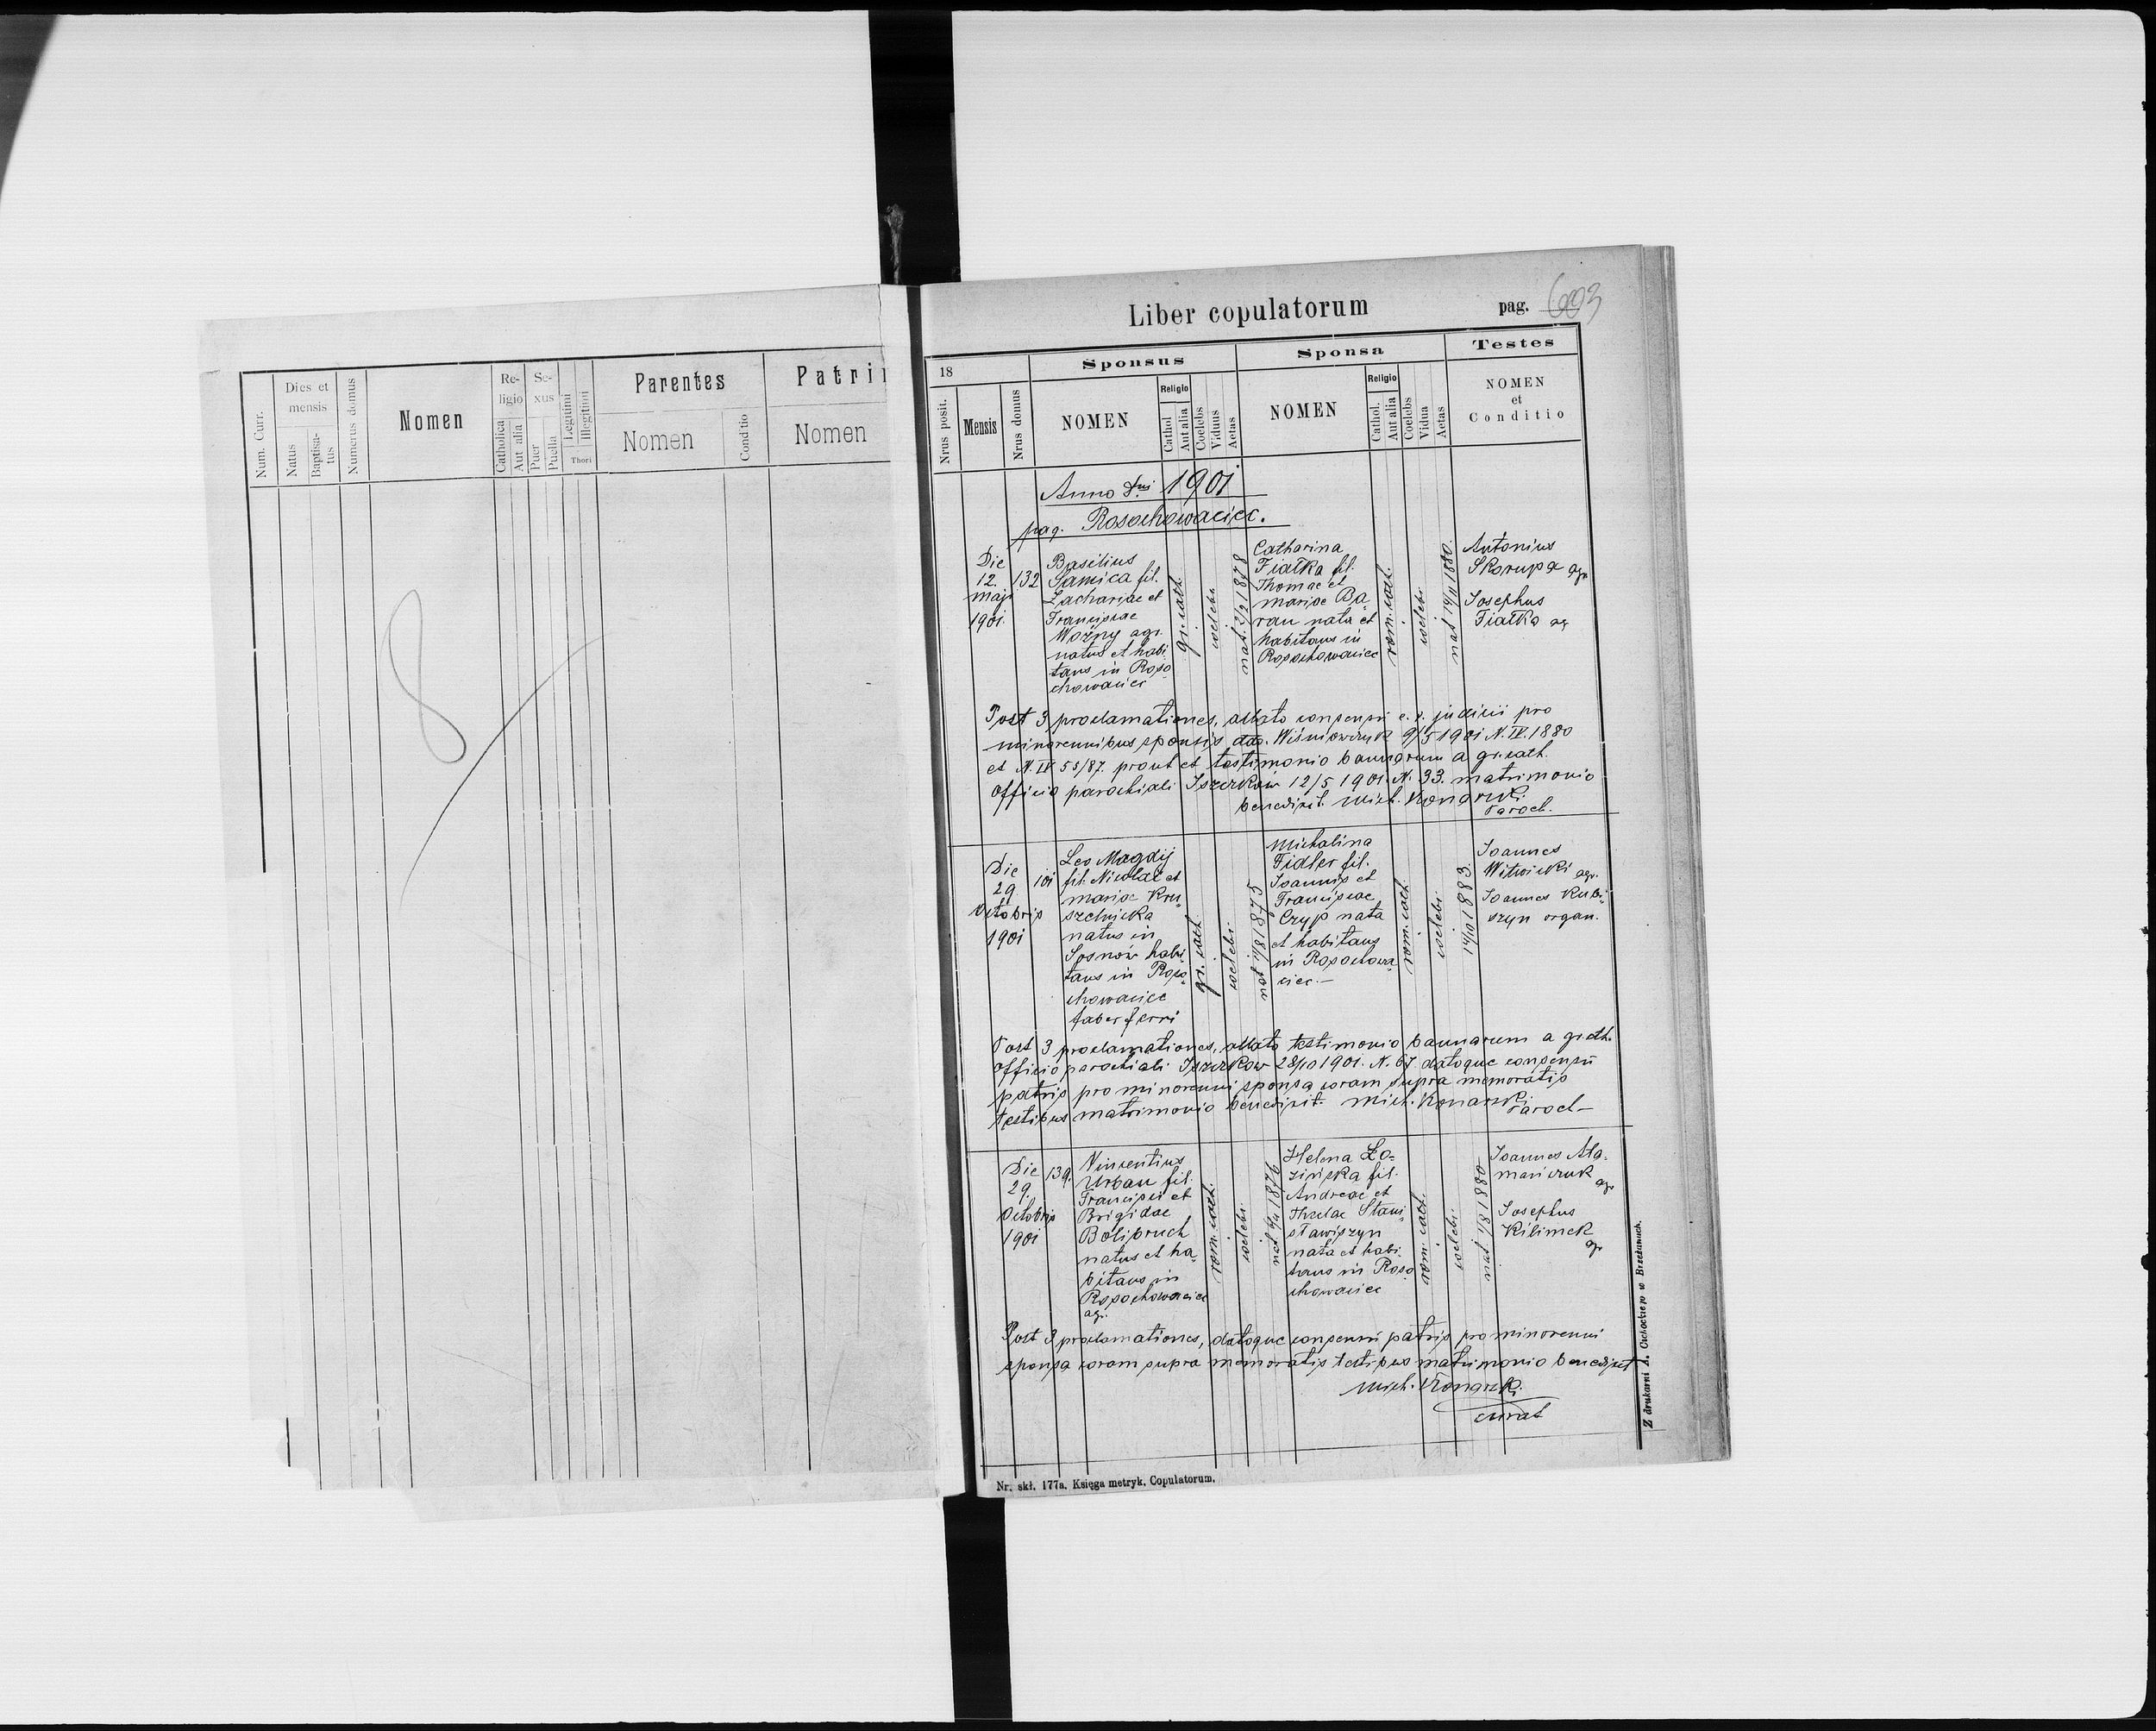 Num. Curr.
Dies et mensis
Natus
Baptisatus
Numerus domus
Nomen
Religio
Catholica
Aut alia
Sexus
Puer
Puella
Legitimi
Illegitimi
Thori
Parentes
Nomen
Conditio
Patri
Nomen
8
Liber copulatorum
pag. 603
18
Sponsus
Sponsa
Testes
Nrus posit.
Mensis
Nrus domus
NOMEN
Religio
Cathol
Aut alia
Coelebs
Viduus
Aetas
NOMEN
Religio
Cathol.
Aut alia
Coelebs
Vidua
Aetas
NOMEN
et
Conditio
Anno Dni 1901
pag. Rosochowaciec.
Die
12.
maji
1901.
132
Basilius
Samica fil.
Zachariae et
Franciscae
Woźny agr.
natus et habi
tans in Roso
chowaciec
gr. cath.
coelebs
nat. 2/2 1878
Catharina
Fiałka fil.
Thomae et
mariae Ba
ran nata et
habitans in
Rosochowaciec
rom. cath.
coelebs
nat 14/11 1880.
Antonius
Skorupa agr
Josephus
Fiałka ag
Post 3 proclamationes, allato consensu c. r. judicii pro
minorennibus sponsis dto. Wiśniowczyk 9/5 1901 N. IV. 1880
et N. IV 55/87. prout et testimonio bannorum a gr. cath.
officio parochiali Iszczków 12/5 1901. N. 33. matrimonio
benedixit. Mich. Konarski
Paroch.
Die
29
Octobris
1901
101
Leo Magdij
fil. Nicolai et
mariae Kru
szelnicka
natus in
Sosnów habi
tans in Roso
chowaciec
faber ferri
gr. cath.
coelebs.
nat 11/8 1875
Michalina
Fidler fil.
Joannis et
Franciscae
Czyp nata
et habitans
in Rosochowa
ciec.—
rom. cath.
coelebs.
14/10 1883.
Joannes
Witwicki agr.
Joannes Kubi
szyn organ.
Post 3 proclamationes, allato testimonio bannarum a gr. cth.
officio parochiali Iszczkow 28/10 1901. N. 67. datoque consensu
patris pro minorenni sponsa coram supra memoratis
testibus matrimonio benedixit. Mich. Konarski
Paroch—
Die
29.
Octobris
1901
139.
Vincentius
Urban fil.
Francisci et
Brigidae
Bolibruch
natus et ha
bitans in
Rosochowaciec
agr.
rom. cath.
coelebs.
Helena Ło-
zińska fil.
Andreae et
Theclae Stani
sławiszyn
nata et habi
tans in Roso
chowaciec
rom. cath.
coelebs.
nat 1/8 1880
Joannes Ata-
mańczuk
agr
Josephus
Kilimek
agr
Post 3 proclamationes, datoque consensu patris pro minorenni
sponsa coram supra memoratis testibus matrimonio benedixit
Mich. Konarski.
curat
Z drukarni A. Cichockiego w Brzeżanach.
Nr. skł. 177a. Księga metryk. Copulatorum.